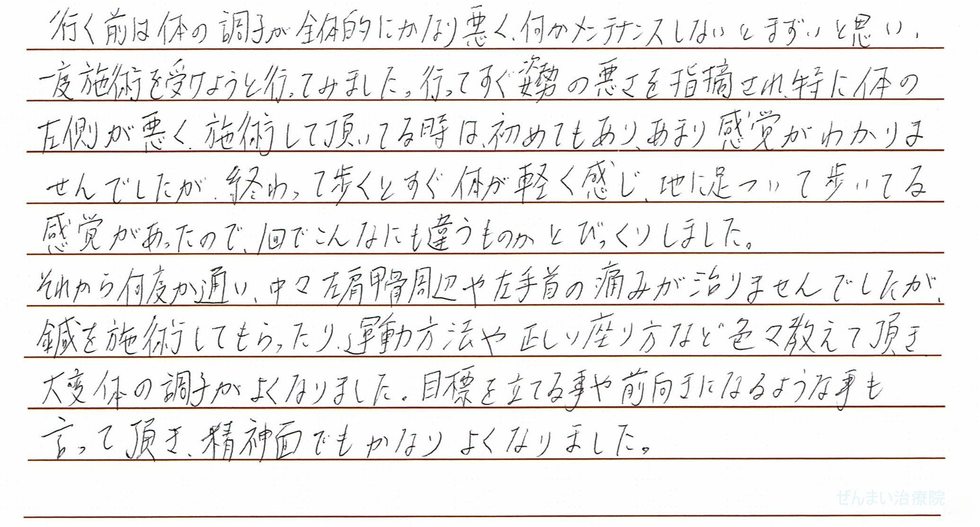 行く前は体の調子が全体的にかなり悪く、何かメンテナンスしないとまずいと思い、
一度施術を受けようと行ってみました。行ってすぐ姿勢の悪さを指摘され、特に体の
左側が悪く、施術して頂いてる時は、初めてもあり、あまり感覚がわかりま
せんでしたが、終わって歩くとすぐ体が軽く感じ、地に足ついて歩いてる
感覚があったので、1回でこんなにも違うものかとびっくりしました。
それから何度か通い、中々左肩甲骨周辺や左手首の痛みが治りませんでしたが、
鍼を施術してもらったり、運動方法や正しい座り方など色々教えて頂き、
大変体の調子がよくなりました。目標を立てる事や前向きになるような事も
言って頂き、精神面でもかなりよくなりました。
ぜんまい治療院